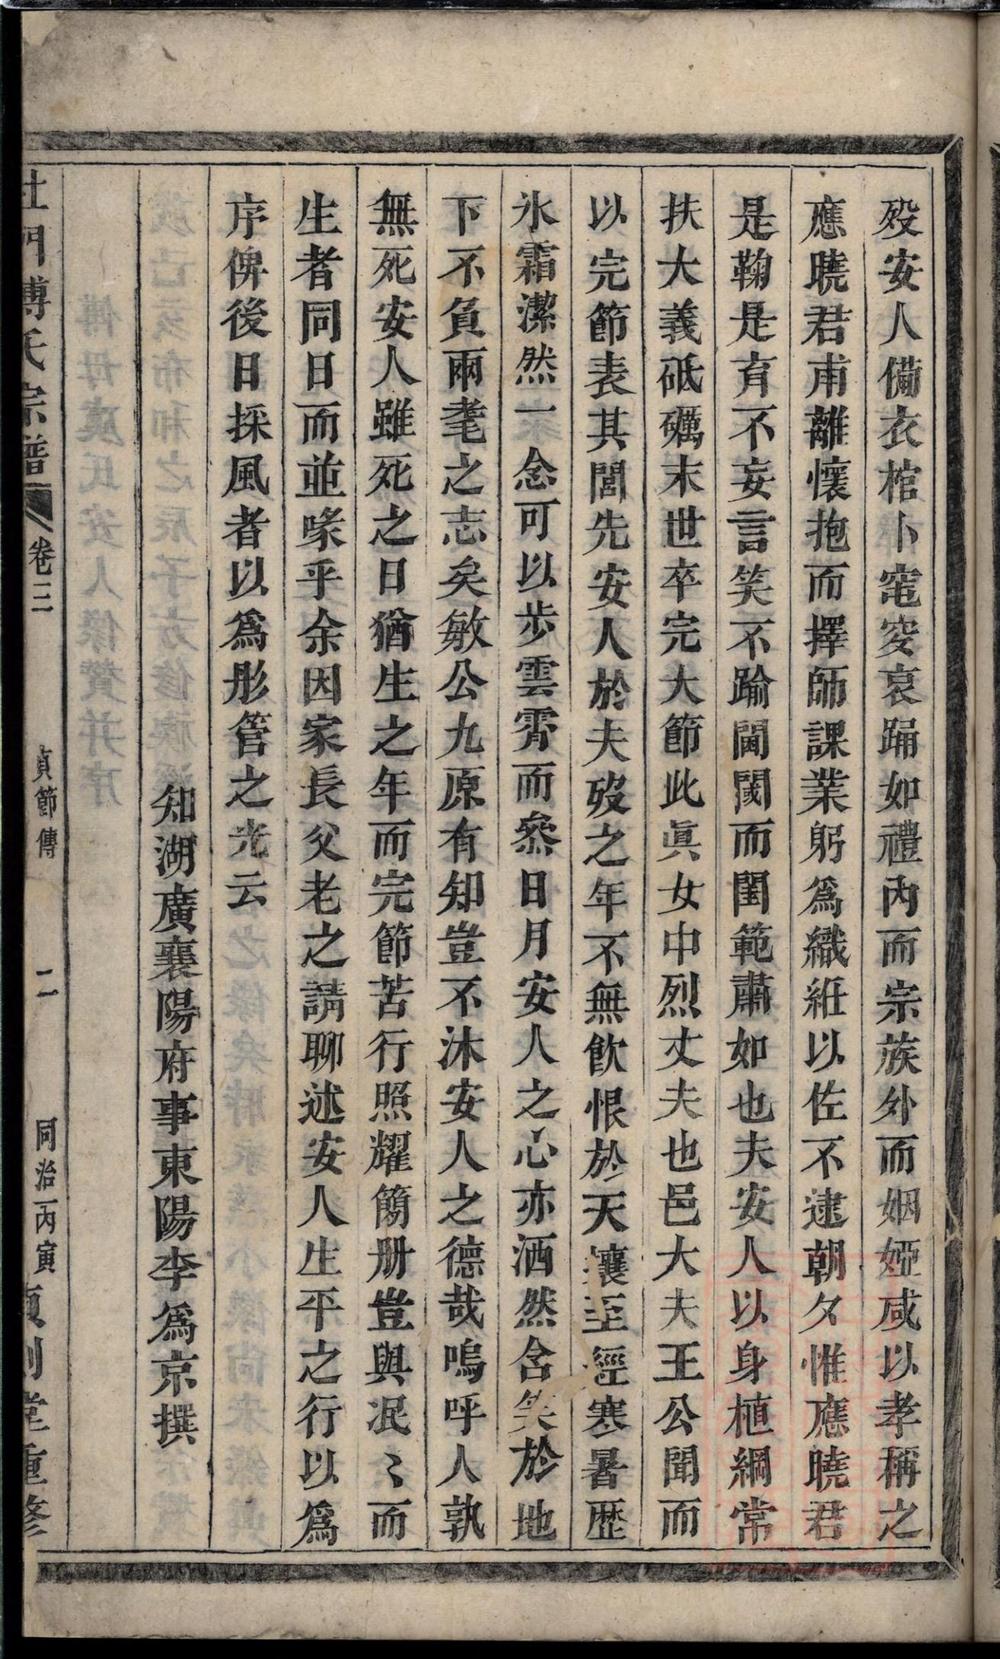 歿安人備衣棺卜窀穸哀踊如禮內而宗族外而姻婭咸以孝稱之
應曉君甫離懷抱而擇師課業躬爲織絍以佐不逮朝夕惟應曉君
是鞠是育不妄言笑不踰閫閾而閨範肅如也夫安人以身植綱常
扶大義砥礪末世卒完大節此眞女中烈丈夫也邑大夫王公聞而
以完節表其閭先安人於夫歿之年不無飲恨於天壤至經寒暑歷
氷霜潔然一念可以步雲霄而叅日月安人之心亦洒然含笑於地
下不負兩耄之志矣敏公九原有知豈不沐安人之德哉嗚呼人孰
無死安人雖死之日猶生之年而完節苦行照耀簡册豈與泯〻而
生者同日而並喙乎余因家長父老之請聊述安人生平之行以爲
序俾後日採風者以爲彤管之光云
知湖廣襄陽府事東陽李爲京撰
杜門傅氏宗譜 卷三 貞節傳 二 同治丙寅 重修